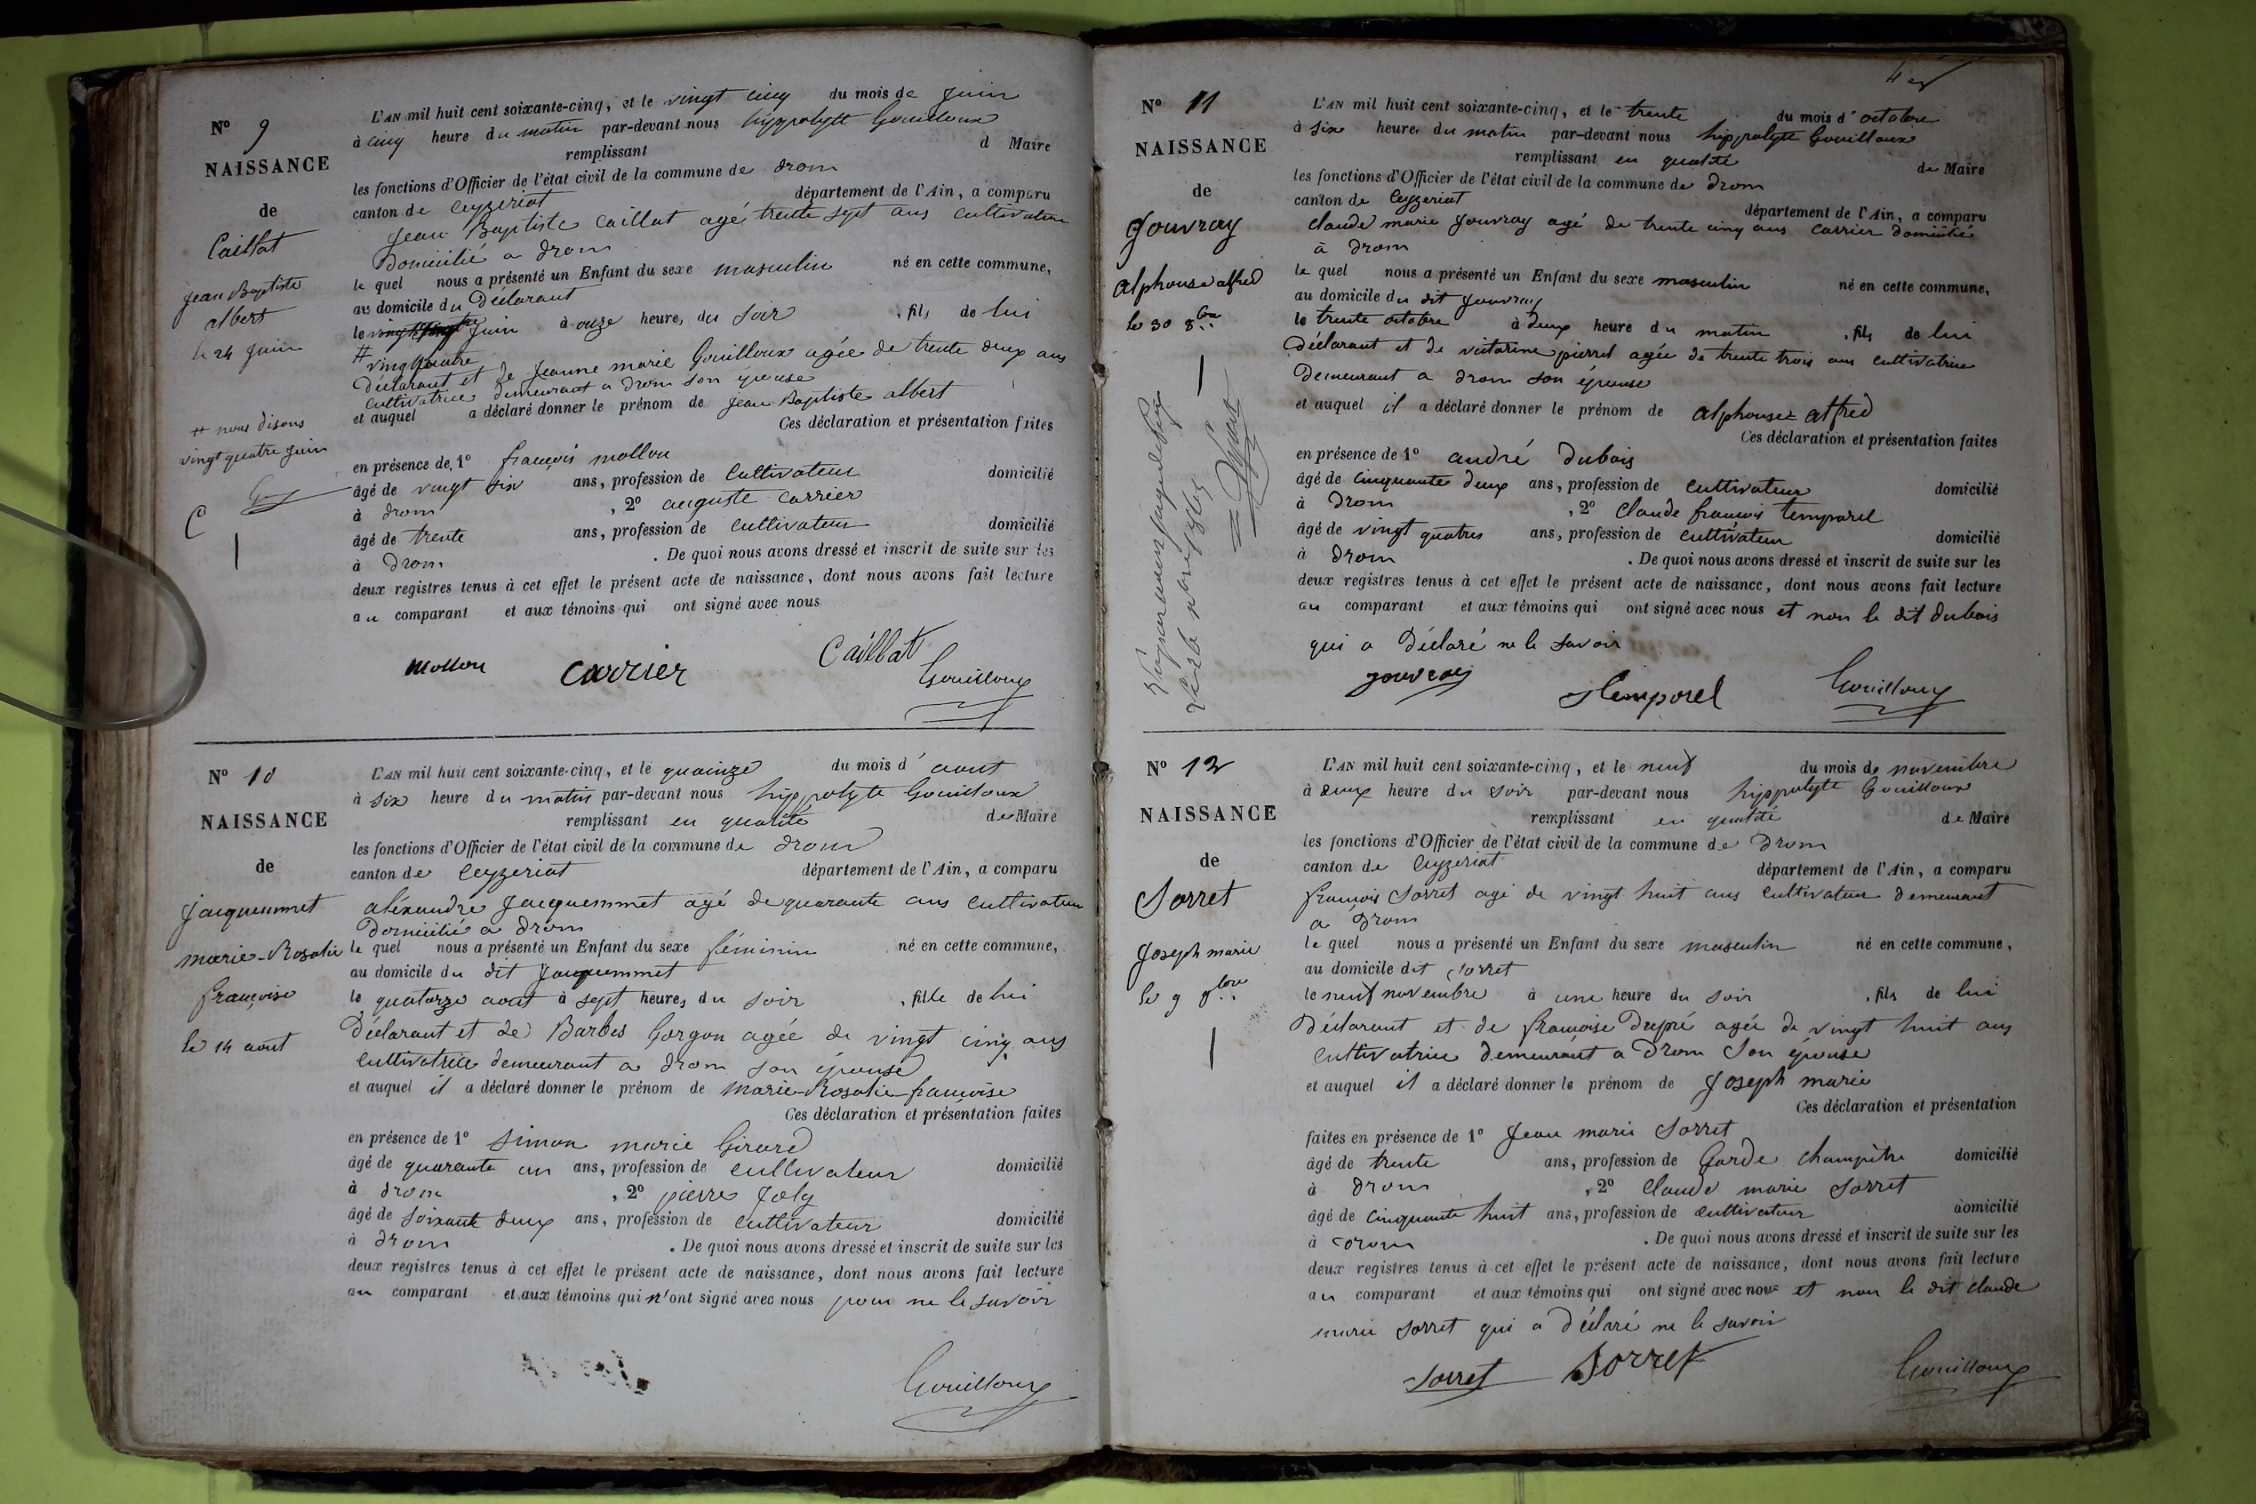 N° 9
NAISSANCE
de
Caillat
Jean Baptiste
albert
le 24 Juin
# nous disons
vingt quatre juin
C
L'AN mil huit cent soixante-cinq, et le vingt cinq du mois de Juin
à cinq heure du matin par-devant nous hyppolytte Gouilloux
remplissant d Maire
les fonctions d'Officier de l'état civil de la commune de drom
canton de Ceyzeriat département de l'Ain, a comparu
Jean Baptiste Caillat agé trente sept ans cultivateur
Domicilié a drom
le quel nous a présenté un Enfant du sexe masculin né en cette commune,
au domicile du Déclarant
le Juin à onze heures du Soir , fils de lui
# vingt quatre
Déclarant et de Jeanne marie Gouilloux agée de trente deux ans
Cultivatrice demeurant a drom son épouse
et auquel a déclaré donner le prénom de Jean Baptiste albert
Ces déclaration et présentation faites
en présence de 1° françois mollon
âgé de vingt six ans, profession de Cultivateur domicilié
à drom , 2° auguste Carrier
âgé de trente ans, profession de Cultivateur domicilié
à Drom . De quoi nous avons dressé et inscrit de suite sur les
deux registres tenus à cet effet le présent acte de naissance, dont nous avons fait lecture
au comparant et aux témoins qui ont signé avec nous
mollon Carrier Caillat Gouilloux
N° 10
NAISSANCE
de
Jacquemmet
marie-Rosalie
françoise
le 14 aout
L'AN mil huit cent soixante-cinq, et le quainze du mois d'aout
à six heure du matin par-devant nous hippolyte Gouilloux
remplissant en qualité de Maire
les fonctions d'Officier de l'état civil de la commune de drom
canton de Ceyzeriat département de l'Ain, a comparu
aléxandre Jacquemmet agé de quarante ans Cultivateur
Domicilié a drom
le quel nous a présenté un Enfant du sexe féminin né en cette commune,
au domicile du dit Jacquemmet
le quatorze aout à sept heures du soir , fille de lui
Déclarant et de Barbes Gorgon agée de vingt cinq ans
Cultivatrice demeurant a drom son épouse
et auquel il a déclaré donner le prénom de marie-Rosalie françoise
Ces déclaration et présentation faites
en présence de 1° Simon marie Girard
âgé de quarante un ans, profession de cultivateur domicilié
à drom , 2° pierre Joly
âgé de soixante deux ans, profession de cultivateur domicilié
à drom . De quoi nous avons dressé et inscrit de suite sur les
deux registres tenus à cet effet le présent acte de naissance, dont nous avons fait lecture
au comparant et aux témoins qui n'ont signé avec nous pour ne le savoir
Gouilloux
N° 11
NAISSANCE
de
Jouvray
alphonse alfred
le 30 8bre
L'AN mil huit cent soixante-cinq, et le trente du mois d'octobre
à six heures du matin par-devant nous hippolytte Gouilloux
remplissant en qualité de Maire
les fonctions d'Officier de l'état civil de la commune de drom
canton de Ceyzeriat département de l'Ain, a comparu
Claude marie Jouvray agé de trente cinq ans Carrier domicilié
à drom
le quel nous a présenté un Enfant du sexe masculin né en cette commune,
au domicile du dit Jouvray
le trente octobre à deux heure du matin , fils de lui
Déclarant et de victorine pierrel agée de trente trois ans cultivatrice
Demeurant a drom son épouse
et auquel il a déclaré donner le prénom de alphonse = alfred
Ces déclaration et présentation faites
en présence de 1° andré Dubois
âgé de cinquante deux ans, profession de cultivateur domicilié
à Drom , 2° Claude françois temporel
âgé de vingt quatres ans, profession de cultivateur domicilié
à drom . De quoi nous avons dressé et inscrit de suite sur les
deux registres tenus à cet effet le présent acte de naissance, dont nous avons fait lecture
au comparant et aux témoins qui ont signé avec nous et non le dit dubois
qui a Déclaré ne le savoir
Jouvray Temporel Gouilloux
N° 12
NAISSANCE
de
Sorret
Joseph marie
le 9 9bre
L'AN mil huit cent soixante-cinq, et le neuf du mois de novembre
à deux heure du soir par-devant nous hippolytte Gouilloux
remplissant en qualité de Maire
les fonctions d'Officier de l'état civil de la commune de Drom
canton de Ceyzeriat département de l'Ain, a comparu
françois Sorret agé de vingt huit ans Cultivateur demeurant
a Drom
le quel nous a présenté un Enfant du sexe masculin né en cette commune,
au domicile dit Sorret
le neuf novembre à une heure du soir , fils de lui
Déclarant et de françoise Dupré agée de vingt huit ans
Cultivatrice demeurant a Drom Son épouse
et auquel il a déclaré donner le prénom de Joseph marie
Ces déclaration et présentation
faites en présence de 1° Jean marie Sorret
âgé de trente ans, profession de Garde champêtre domicilié
à Drom , 2° Claude marie Sorret
âgé de Cinquante huit ans, profession de Cultivateur domicilié
à drom . De quoi nous avons dressé et inscrit de suite sur les
deux registres tenus à cet effet le présent acte de naissance, dont nous avons fait lecture
au comparant et aux témoins qui ont signé avec nous et non le dit Claude
marie Sorret qui a Déclaré ne le savoir
Sorret Sorret Gouilloux